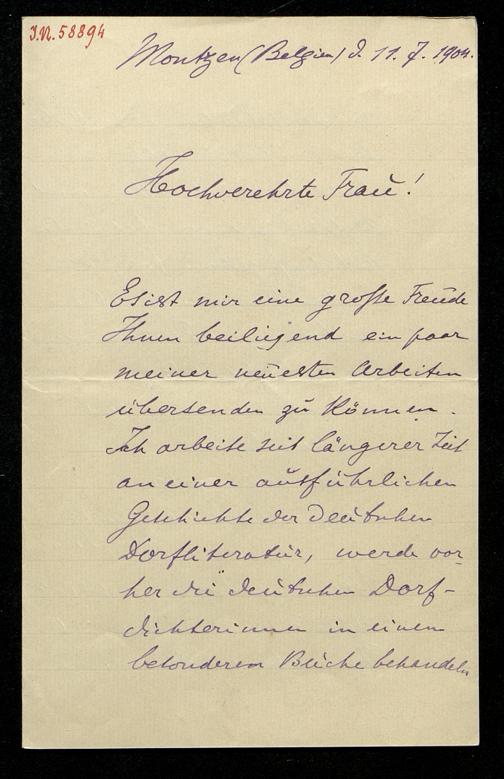 J.N. 58894
Montzen (Belgien) d. 11. 7. 1904.
Hochverehrte Frau!
Es ist mir eine große Freude
Ihnen beiliegend ein paar
meiner neuesten Arbeiten
übersenden zu können.
Ich arbeite seit längerer Zeit
an einer ausführlichen
Geschichte der deutschen
Dorfliteratur, werde vor-
her die deutschen Dorf-
dichterinnen in einem
besonderem Buche behandeln